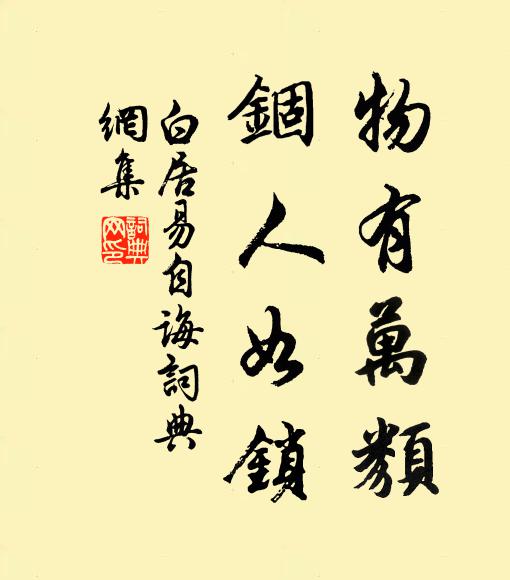 物有萬類
錮人如鎖
白居易自誨詞典
網集
詞典
网印